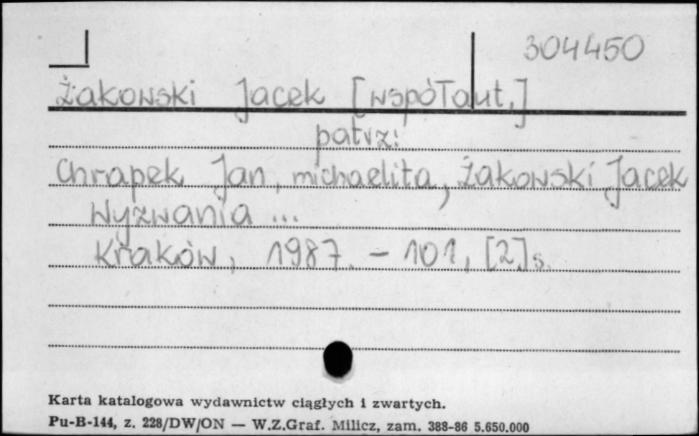 304450
Żakowski Jacek [współaut.]
patrz:
Chrapek Jan, michaelita, Żakowski Jacek
Wyzwania ...
Kraków, 1987. – 101, [2] s.
Karta katalogowa wydawnictw ciągłych i zwartych.
Pu-B-144, z. 228/DW/ON — W.Z.Graf. Milicz, zam. 388-86 5.650.000